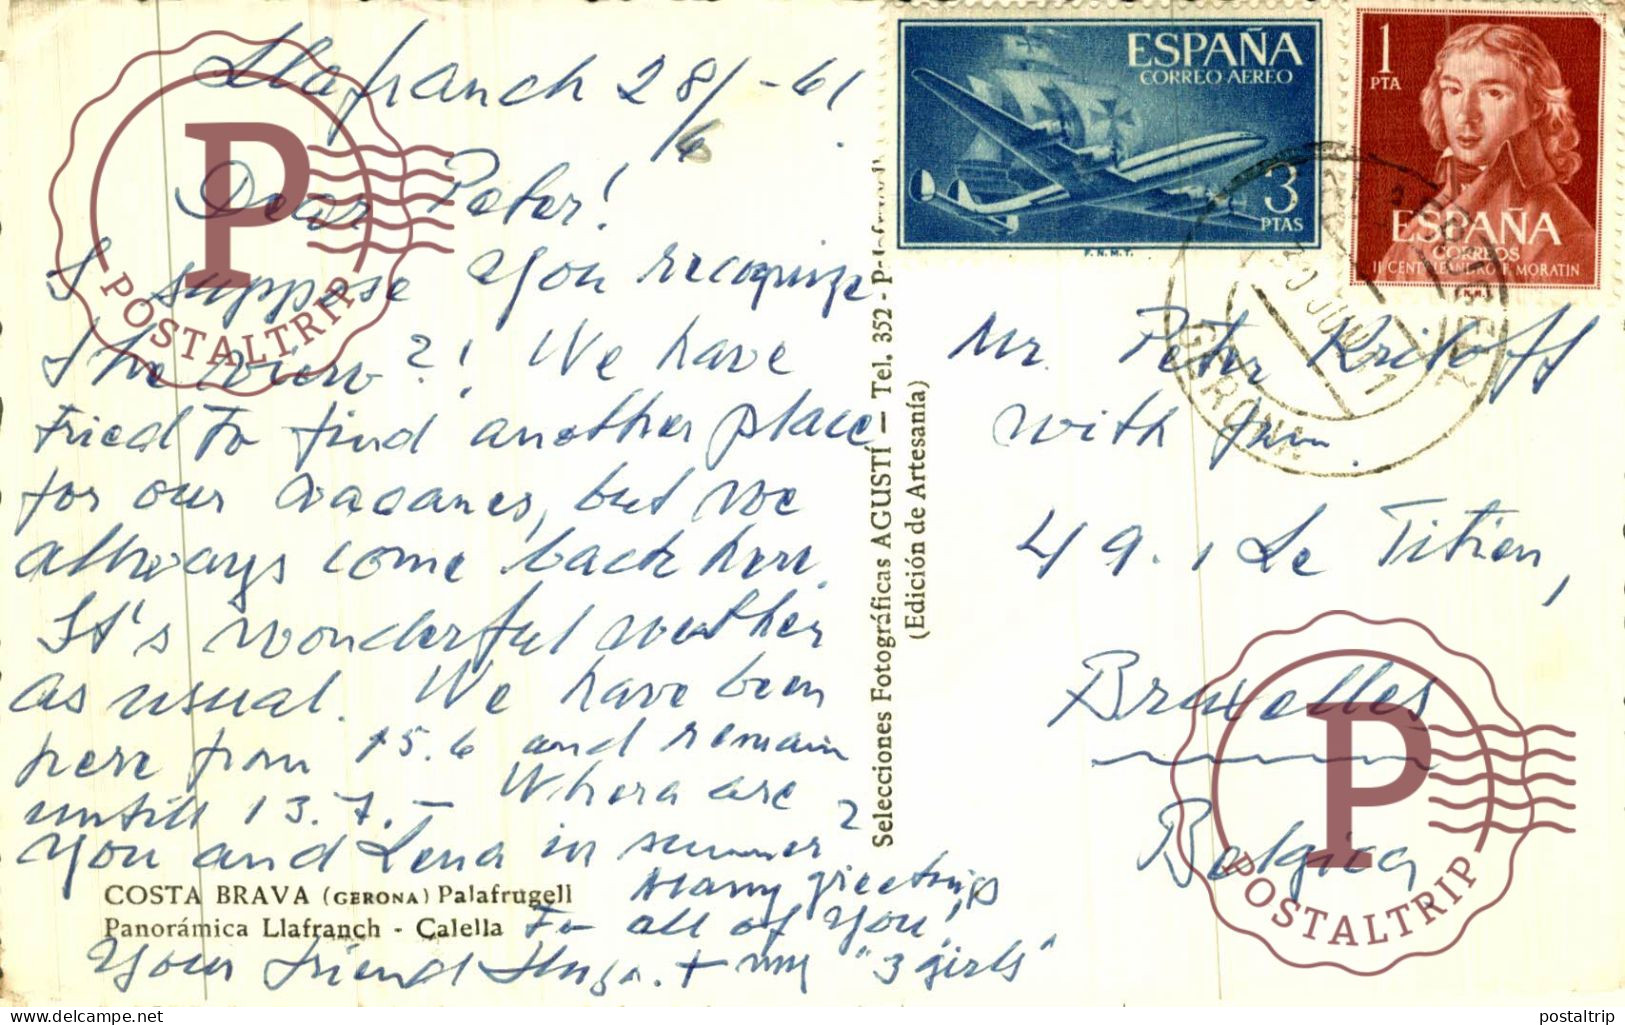 Llafranch 28/6 -61.
Dear Peter!
I suppose you recognize
the view?! We have
tried to find another place
for our vacanes, but we
allways come back here.
It's wonderful weather
as usual. We have been
here from 15.6 and remain
untill 13.7.- Where are
you and Lena in summer?
Many greetings
to all of you!
Your friend + my "3 girls"
COSTA BRAVA (GERONA) Palafrugell
Panorámica Llafranch - Calella
Selecciones Fotográficas AGUSTÍ — Tel. 352 -
(Edición de Artesanía)
ESPAÑA
CORREO AEREO
3
PTAS
F.N.M.T.
1
PTA
ESPAÑA
CORREOS
II CENT. LEANDRO F. MORATIN
GERONA
30 JUN
Mr. Peter
with fam.
49., Le Titien,
Bruxelles
Belgica
P
POSTALTRIP
P
POSTALTRIP
https://www.delcampe.net
postaltrip